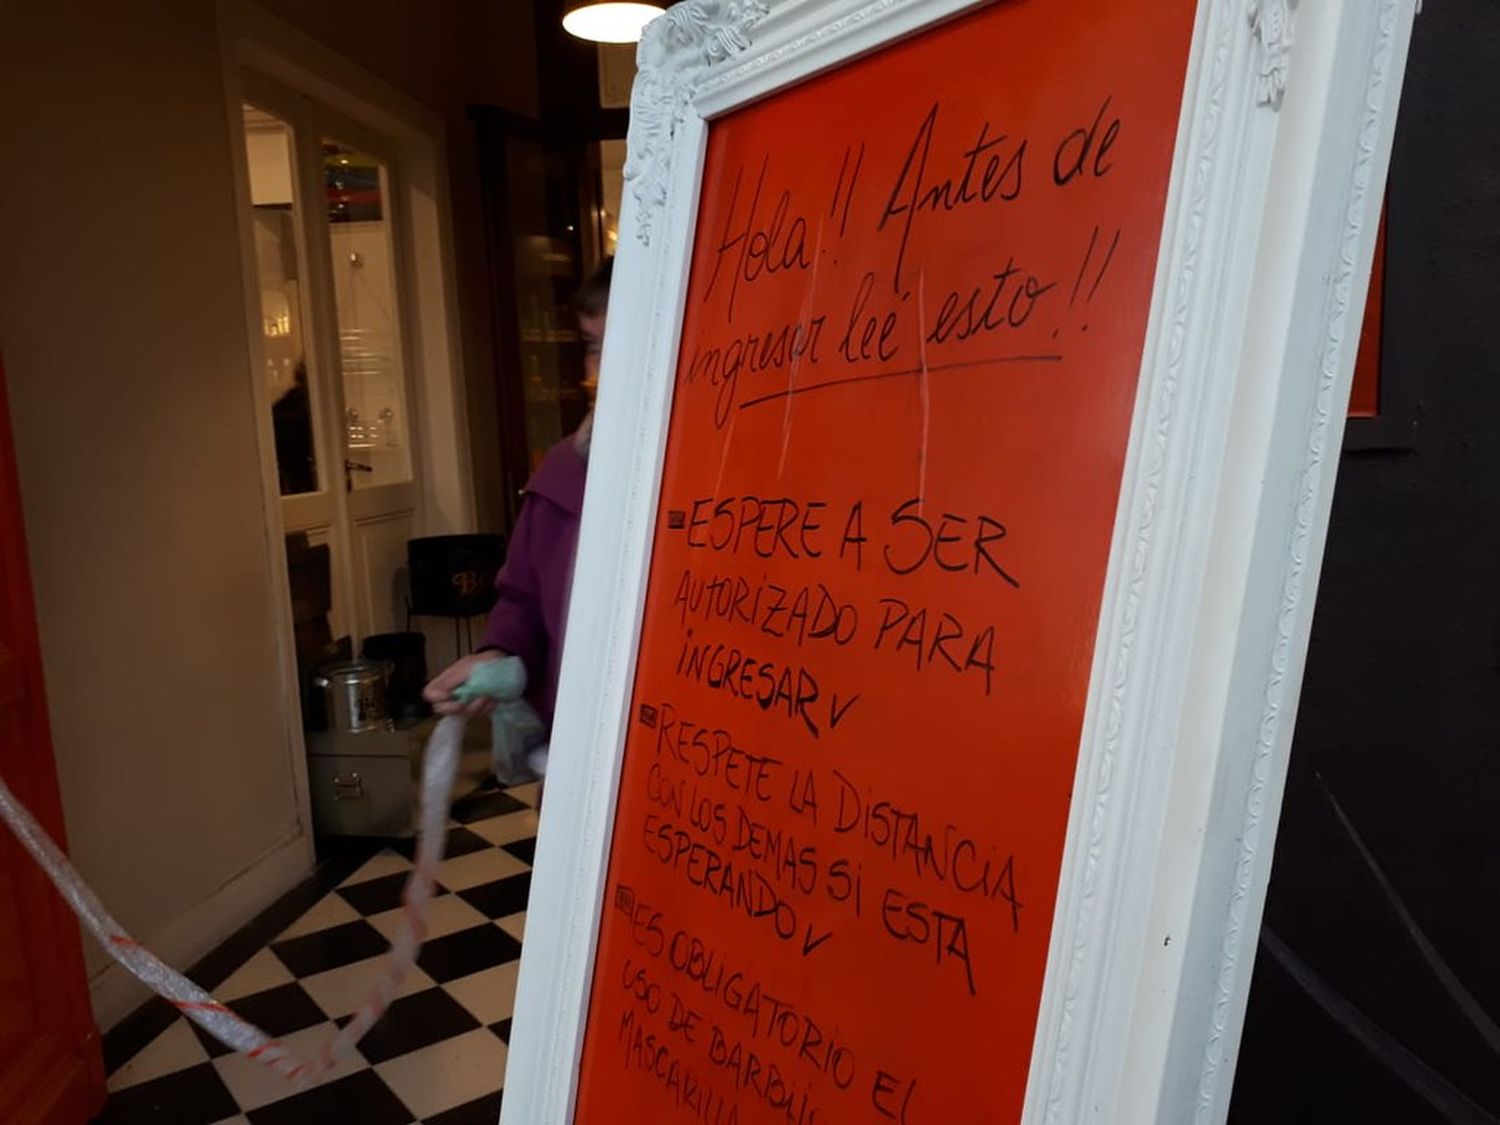 Hola!! Antes de
ingresar leé esto!!
- ESPERE A SER
AUTORIZADO PARA
INGRESAR ✓
- RESPETE LA DISTANCIA
CON LOS DEMAS SI ESTA
ESPERANDO ✓
- ES OBLIGATORIO El
USO DE BARBIJO
MASCARILLA